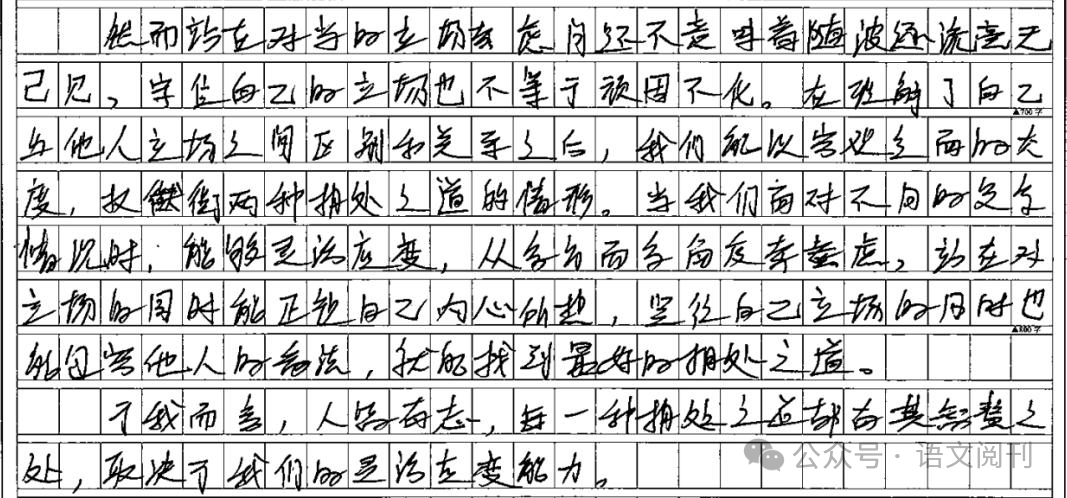 然而站在对方的立场去考虑问题不意味着随波逐流毫无
己见,守住自己的立场也不等于顽固不化。在理解了自己
与他人立场之间区别和关系之后,我们能以客观全面的态
度,权衡两种相处之道的情形。当我们面对不同的交
情况时,能够灵活应变,从多方面多角度去考虑,站在对
立场的同时能正视自己内心所想,坚守自己立场的同时也
能包容他人的看法,就能找到最好的相处之道。
于我而言,人各有志,每一种相处之道都有其智慧之
处,取决于我们的灵活应变能力。
▲700字
▲800字
公众号·语文阅刊